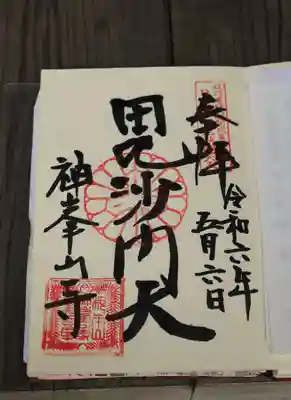 奉拝
令和六年
五月六日
毘沙門天
神峯山寺